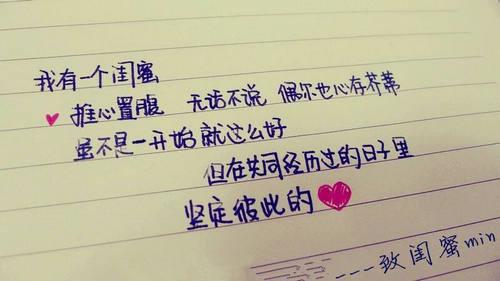 我有一个闺蜜
推心置腹 无话不说 偶尔也心存芥蒂
虽不是一开始就这么好
但在共同经历过的日子里
坚定彼此的
----致闺蜜min